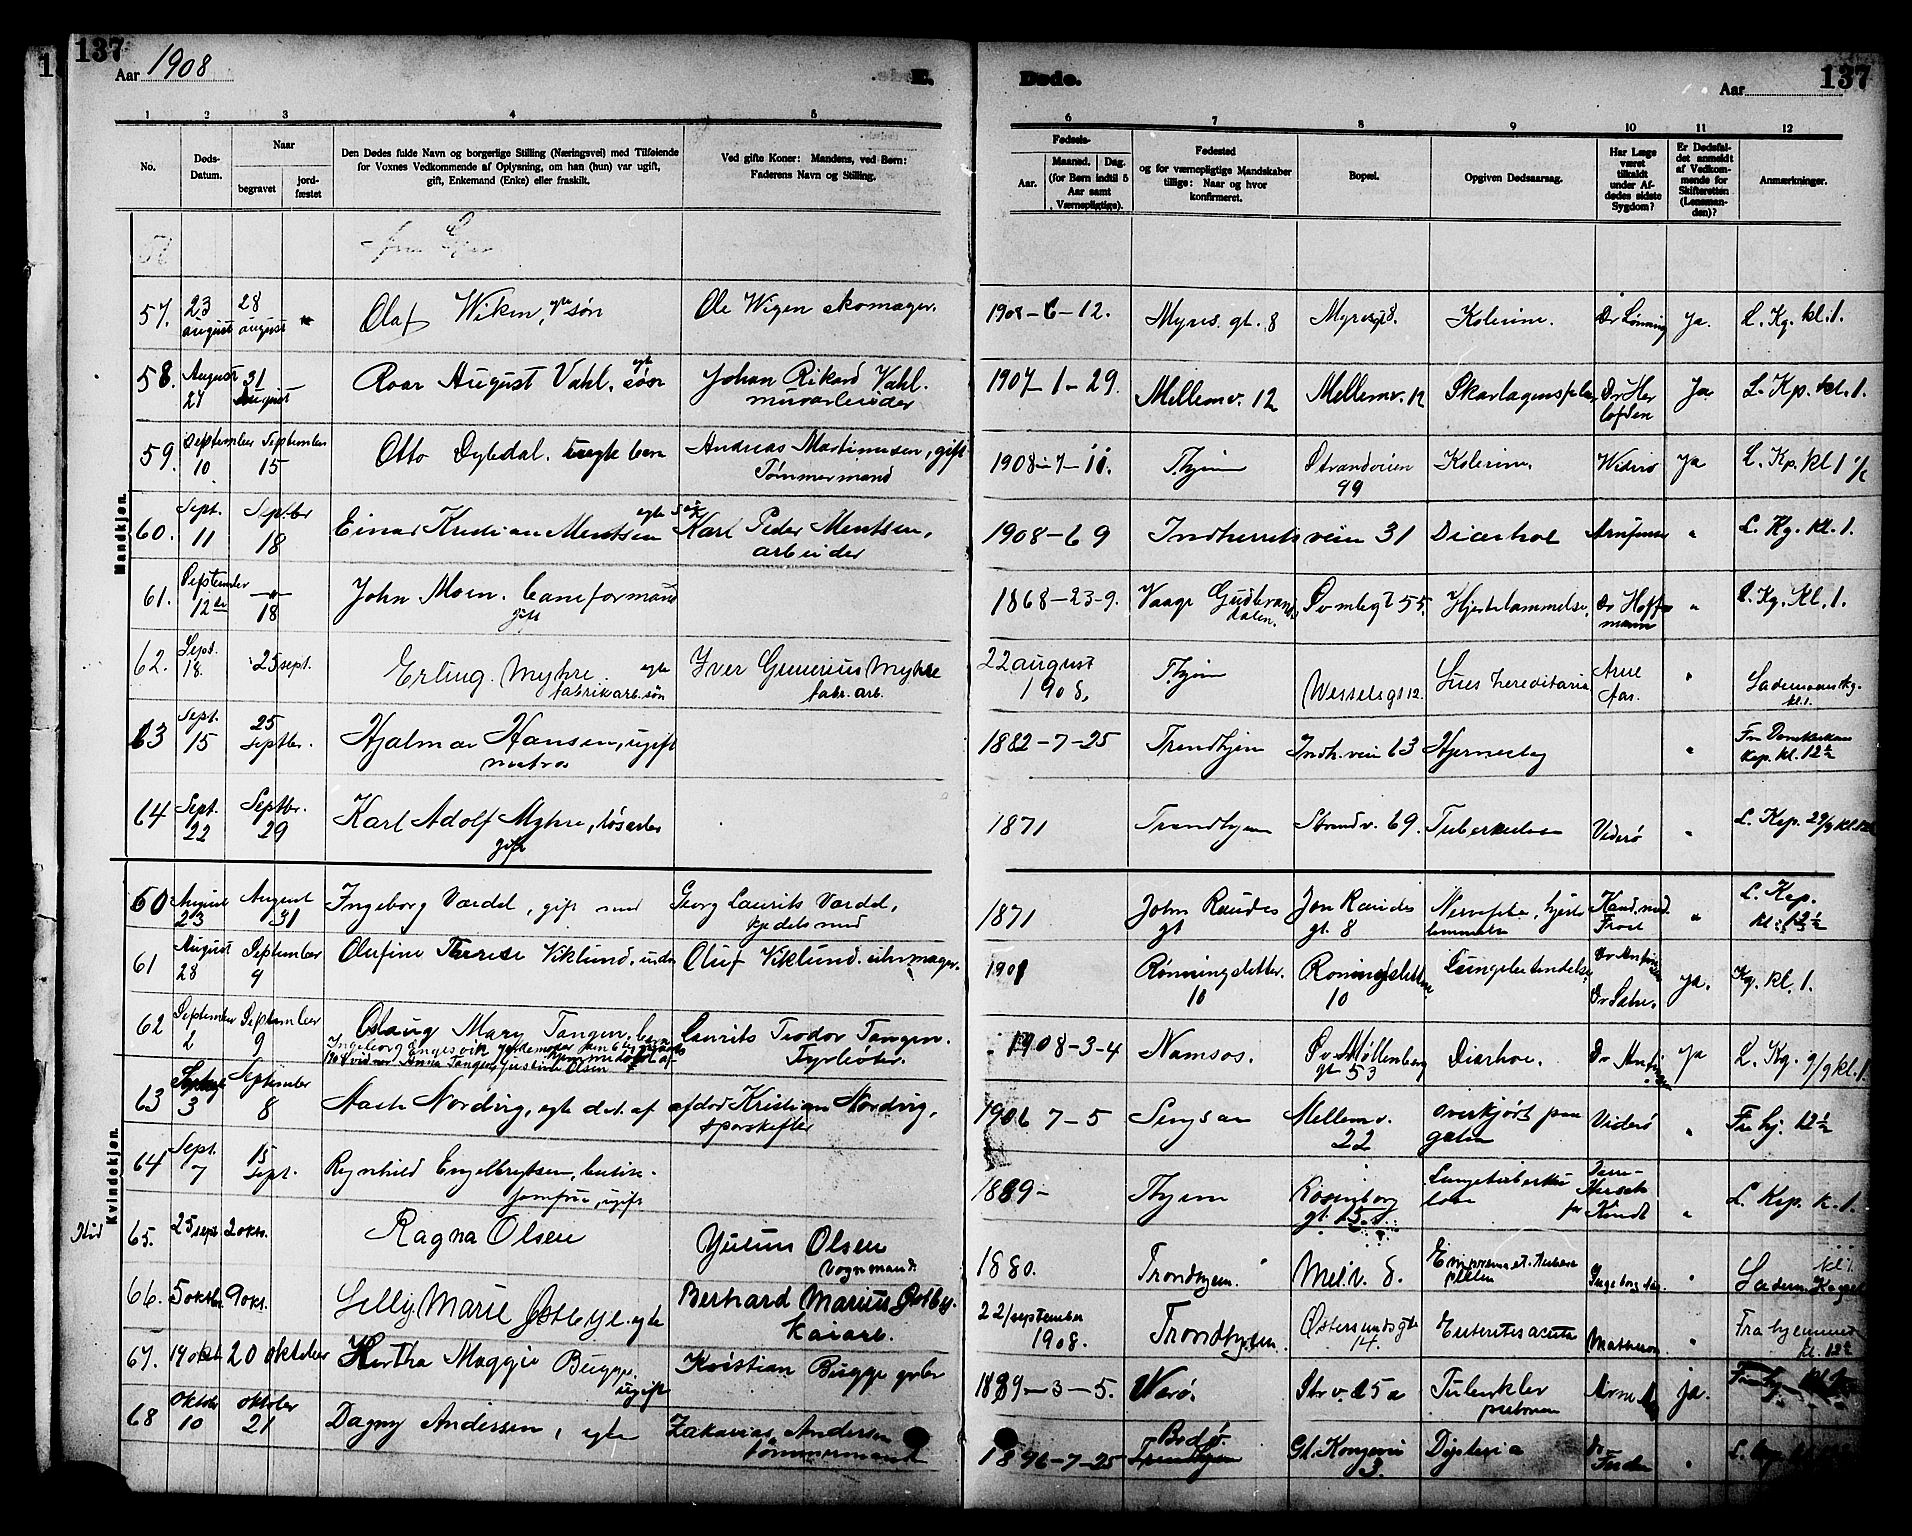 137
Aar 1908
E.
Døde.
Aar
137
1 2 3 4 5 6 7 8 9 10 11 12
No.
Døds-Datum.
Naar
begravet
jord-fæstet
Den Dødes fulde Navn og borgerlige Stilling (Næringsvei) med Tilføiende
for Voxnes Vedkommende af Oplysning, om han (hun) var ugift,
gift, Enkemand (Enke) eller fraskilt.
Ved gifte Koner: Mandens, ved Børn:
Faderens Navn og Stilling.
Fødsels-
Aar.
Maaned. Dag.
(for Børn indtil 5
Aar samt
Værnepligtige).
Fødested
og for værnepligtige Mandskaber
tillige: Naar og hvor
konfirmeret.
Bopæl.
Opgiven Dødsaarsag.
Har Læge
været
tilkaldt
under Af-
dødes sidste
Sygdom?
Er Dødsfal-
det anmeldt
af Vedkom-
mende for
Skifteretten
(Lensman-
den)?
Anmærkninger.
Mandkjøn.
57. 23 august 28 august Olaf Wiken, egte søn Ole Wigen skomager. 1908-6-12. Myres. gt. 8 Myresgt 8. Kolerine. Dr Lønning Ja. L. Kg. kl. 1.
58. August 27 31 August Roar August Vahl, egte søn Johan Rikard Vahl. murarbeider 1907-1-29. Mellemv. 12 Mellemv. 12 Skarlagensfeber Dr Herlofsen Ja L. Kp. kl. 1.
59. September 10 September 15 Otto Dybdal. uegte barn Andreas Martinusen, gift Tømmermand 1908-7-11. Thjem Strandveien 99 Kolerine. Widerø Ja L. Kp. kl 1 1/2
60. Sept. 11 Septbr 18 Einar Kristian Mentsen egte søn Karl Peder Mentsen, arbeider 1908-6 9 Indherredsveien 31 Diarhoe " L. Kg. kl. 1.
61. September 12te —"— 18 John Moen. baneformand gift 1868-23-9. Vaage Gudbrandsdalen. Hjertelammelse, Dr Hoffmann " L. Kg. Kl. 1.
62. Sept. 18. 25 sept. Erling Myhre. egte fabrikarb. søn Iver Gunerius Myhre fabr. arb. 22 august 1908, Thjem Wesselsgt 12. Lues hereditaria Arne Aas. " Lademoens Kg. kl. 1.
63 Sept. 15 25 Septbr. Hjalmar Hansen, ugift matros 1882-7-25 Trondhjem Indh. veien 63 " Fra Domkirken Kap. kl. 12½
64 Sept. 22 Septbr. 29 Karl Adolf Myhre, løsarb. gift 1871 Trondhjem Strandv. 69. Tuberkulose Viderø " L. Kap. 29/9 kl.
Kvindekjøn.
60 August 23 August 31 Ingeborg Værdal, gift med Georg Laurits Værdal, kjedelsmed 1871 John Raudes gt Jon Raudes gt. 8 Nervefeber, hjertelammelse Kand. med. Frost " L. Kap. kl. 12½
61 August 28 September 9 Olufine Therese Viklund. Oluf Viklund. uhrmager. 1901 Rønningsletten. 10 Rønningsletten 10 Lungebetændelse Ja. Kg. kl. 1.
62 September 2 September 9 Oslaug Mary Tangen, barn Laurits Teodor Tangen. Fyrbøter. 1908-3-4 Namsos. Øv. Møllenberg gt 53 Diarhoe. Ja L. Kg. 9/9 kl. 1.
63 3 September 8 Aase Nordvig, egte dat. af afdød Kristian Nordvig, sporskifter 1906 7-5 Singsaa Mellemv. 22 overkjørt paa gaten Viderø " Fra hj. 12½
64 Sept. 7 15 Sept. Ragnhild Engelbrytsen, butikjomfru, ugift 1889- Thjem Rosenborg gt. 15. Lungetuberkulose " L. Kap. k. 1.
65. 25 sept 2 okt. Ragna Olsen Julius Olsen Vognmand. 1880. Trondhjem. Mel.v. 8. " Ladem. Kapel kl 1.
66. 5 oktbr. 9 okt. Lilly Marie Østbye. egte Bernhard Marius Østby. Kaiarb. 22/september 1908. Trondhjem. Østersundsgt 14. Enteritis acuta " Fra hjemmet kl. 12½
67. 19 oktbr 20 oktober Hertha Maggie Bugge. ugift Kristian Bugge 1889-3-5. Warø. Str v. 25a ja.
68 oktober 10 oktober 21 Dagny Andersen, egte Zakarias Andersen tømmermand 1896-7-25 Bodø. Trondhjem Gl. Kongevei 3. Dr "